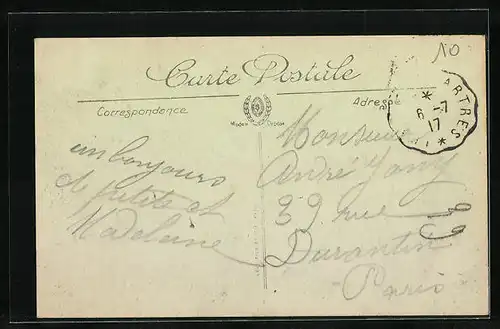 10
Carte Postale
Correspondance
Adresse
ARTRES
6 -7
17
un bonjour
de petite et
Madeleine
Monsieur
André
39 rue
Durantin
Paris